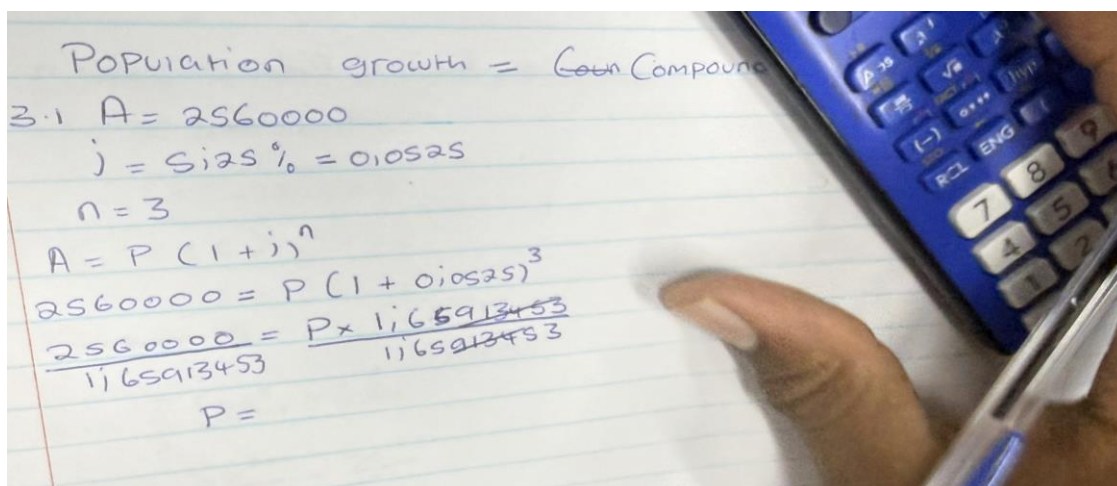 Population growth = Coun Compound
3.1 A = 2560000
j = 5;25% = 0,0525
n = 3
A = P (1 + j)ⁿ
2560000 = P (1 + 0;0525)³
2560000 = P x 1;65913453
1;65913453 1;65913453
P =
RCL ENG
(-)
hyp
7 8 9
4 5 6
1 2